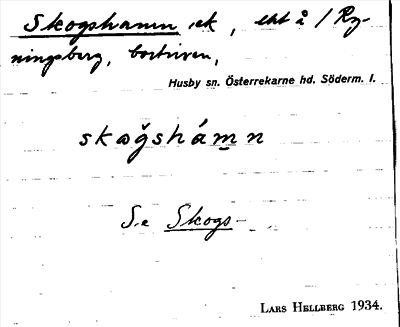 Skogshamn, ek, ekt å / Ry-
ningsberg, bortriven,
Husby sn. Österrekarne hd. Söderm. l.
skøǧshámn
Se Skogs-
LARS HELLBERG 1934.